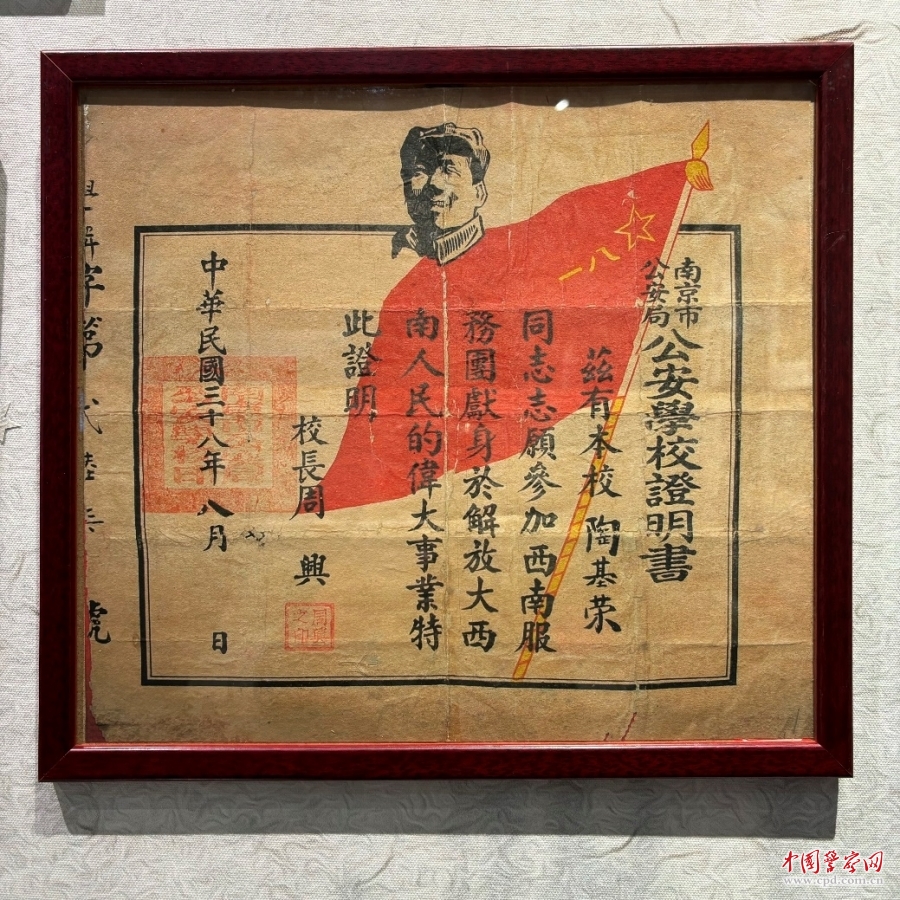 南京市
公安局
公安學校證明書
茲有本校 陶基荣
同志志願參加西南服
務團獻身於解放大西
南人民的偉大事業特
此證明
校長周興
周興之印
中華民國三十八年八月 日
字第 弍陸 號
八一
中国警察网
www.cpd.com.cn